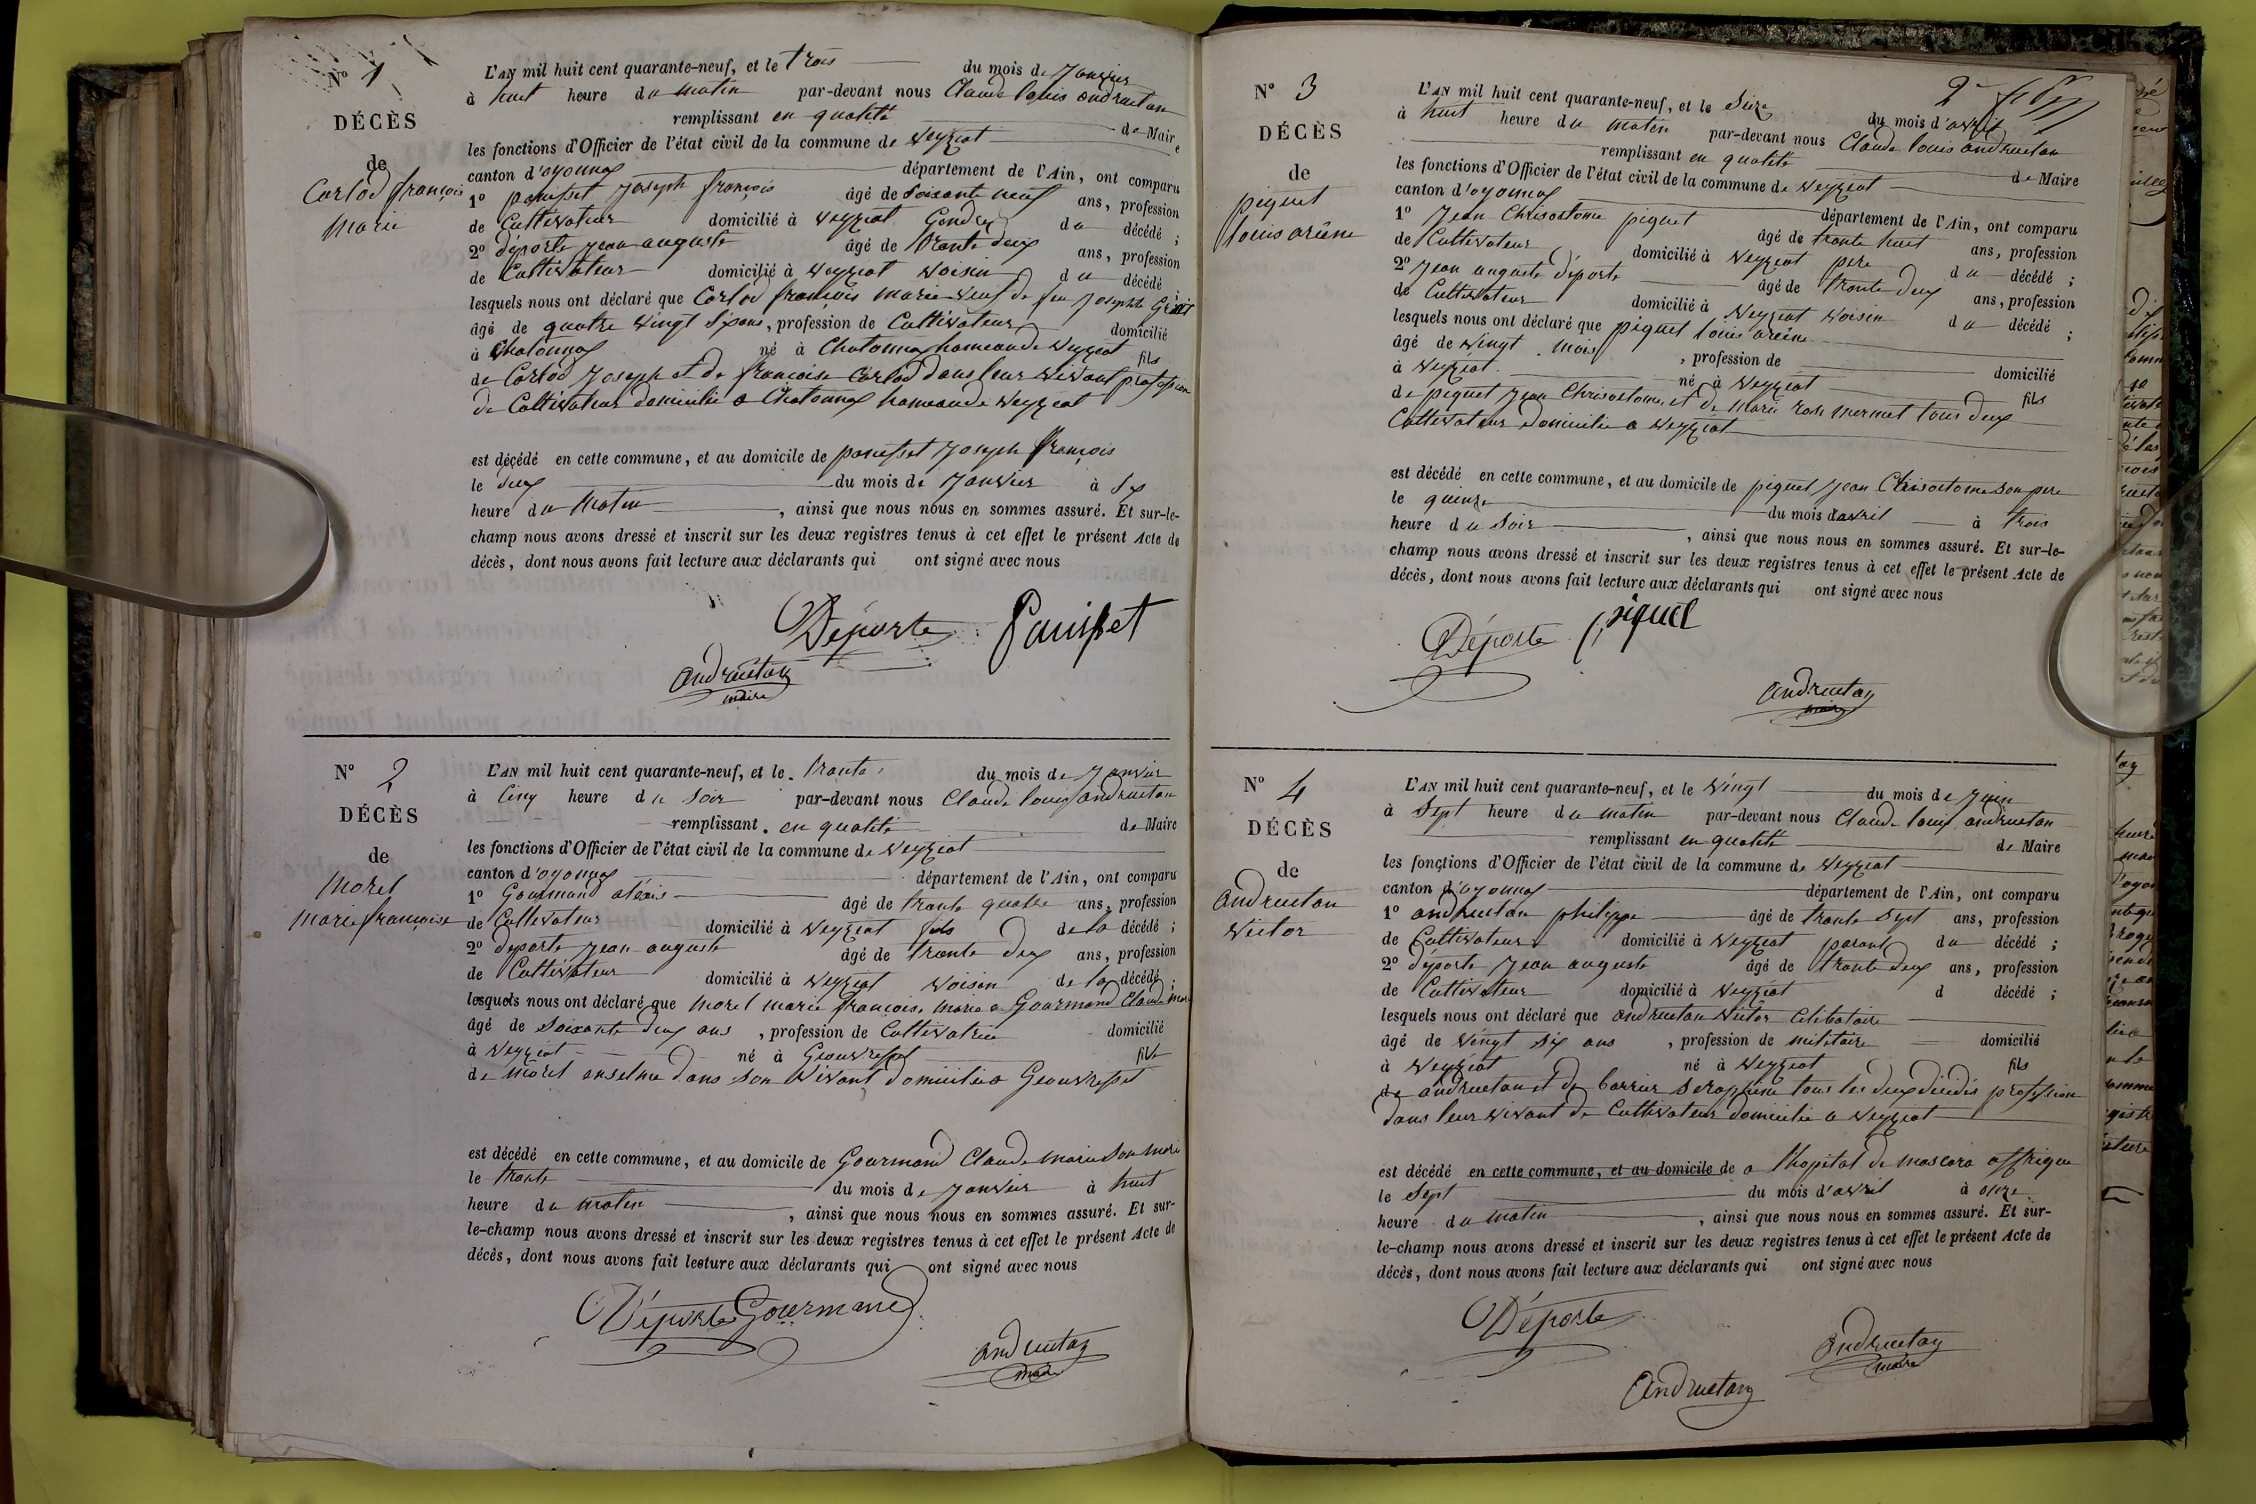 N° 1
DÉCÈS
de
Corlod françois
Marie
L'AN mil huit cent quarante-neuf, et le trois du mois de Janvier
à huit heure du matin par-devant nous Claude louis andruetan
remplissant en qualité de Maire
les fonctions d'Officier de l'état civil de la commune de veyziat
canton d'oyonnax département de l'Ain, ont comparu
1° ponisset Joseph françois âgé de soixante neuf ans, profession
de Cultivateur domicilié à veyziat Gendre du décédé ;
2° déporte jean auguste âgé de trante deux ans, profession
de Cultivateur domicilié à veyziat voisin du décédé ;
lesquels nous ont déclaré que Corlod françois Marie veuf de feu Josephte
âgé de quatre vingt Sixans, profession de Cultivateur domicilié
à Chatonnax né à Chatonnax hameau de veyziat fils
de Corlod Joseph et de françoise Corlod dans leur vivant profession
de Cultivateur domicilié a Chatonnax hameau de veyziat
est décédé en cette commune, et au domicile de ponisset Joseph françois
le deux du mois de Janvier à Six
heure du Matin , ainsi que nous nous en sommes assuré. Et sur-le-
champ nous avons dressé et inscrit sur les deux registres tenus à cet effet le présent Acte de
décès, dont nous avons fait lecture aux déclarants qui ont signé avec nous
Déporte Ponisset
andruetan
maire
N° 2
DÉCÈS
de
Morel
Marie françoise
L'AN mil huit cent quarante-neuf, et le trante du mois de Janvier
à Cinq heure du soir par-devant nous Claude louis andruetan
remplissant en qualité de Maire
les fonctions d'Officier de l'état civil de la commune de veyziat
canton d'oyonnax département de l'Ain, ont comparu
1° Gourmand aléxis âgé de trante quatre ans, profession
de Cultivateur domicilié à veyziat fils de la décédé ;
2° déporte Jean auguste âgé de trante deux ans, profession
de Cultivateur domicilié à veyziat voisin de la décédé ;
lesquels nous ont déclaré que morel marie françoise marié a Gourmand Claude marie
âgé de soixante deux ans , profession de Cultivatrice domicilié
à veyziat né à Géovresset fille
de Morel anselme dans son vivant domicilié a Géovresset
est décédé en cette commune, et au domicile de Gourmand Claude marie son mari
le trante du mois de Janvier à huit
heure du matin , ainsi que nous nous en sommes assuré. Et sur-
le-champ nous avons dressé et inscrit sur les deux registres tenus à cet effet le présent Acte de
décès, dont nous avons fait lecture aux déclarants qui ont signé avec nous
Déporte Gourmand
andruetan
maire
N° 3
DÉCÈS
de
piquet
louis arséne
L'AN mil huit cent quarante-neuf, et le Seize du mois d'avril
à huit heure du matin par-devant nous Claude louis andruetan
remplissant en qualité de Maire
les fonctions d'Officier de l'état civil de la commune de veyziat
canton d'oyonnax département de l'Ain, ont comparu
1° Jean Chrisostome piquet âgé de trante huit ans, profession
de Cultivateur domicilié à veyziat pere du décédé ;
2° Jean auguste déporte âgé de trante deux ans, profession
de Cultivateur domicilié à veyziat voisin du décédé ;
lesquels nous ont déclaré que piquet louis arséne
âgé de vingt mois , profession de domicilié
à veyziat né à veyziat fils
de piquet Jean Chrisostome et de Marie rose mermet tous deux
Cultivateur domicilié a veyziat
est décédé en cette commune, et au domicile de piquet Jean Chrisostome son pere
le quinze du mois d'avril à trois
heure du soir , ainsi que nous nous en sommes assuré. Et sur-le-
champ nous avons dressé et inscrit sur les deux registres tenus à cet effet le présent Acte de
décès, dont nous avons fait lecture aux déclarants qui ont signé avec nous
Déporte piquet
andruetan
maire
N° 4
DÉCÈS
de
andruetan
victor
L'AN mil huit cent quarante-neuf, et le vingt du mois de Juin
à Sept heure du matin par-devant nous Claude louis andruetan
remplissant en qualité de Maire
les fonctions d'Officier de l'état civil de la commune de veyziat
canton d'oyonnax département de l'Ain, ont comparu
1° andruetan philippe âgé de trante sept ans, profession
de Cultivateur domicilié à veyziat parant du décédé ;
2° déporte Jean auguste âgé de trante deux ans, profession
de Cultivateur domicilié à veyziat d décédé ;
lesquels nous ont déclaré que andruetan victor célibataire
âgé de vingt six ans , profession de militaire domicilié
à veyziat né à veyziat fils
de andruetan et de barrier seraphine tous les deux décédés profession
dans leur vivant de Cultivateur domicilié a veyziat
est décédé en cette commune, et au domicile de a l'hopital de mascara affrique
le Sept du mois d'avril à onze
heure du matin , ainsi que nous nous en sommes assuré. Et sur-
le-champ nous avons dressé et inscrit sur les deux registres tenus à cet effet le présent Acte de
décès, dont nous avons fait lecture aux déclarants qui ont signé avec nous
Déporte
andruetan
maire
andruetan